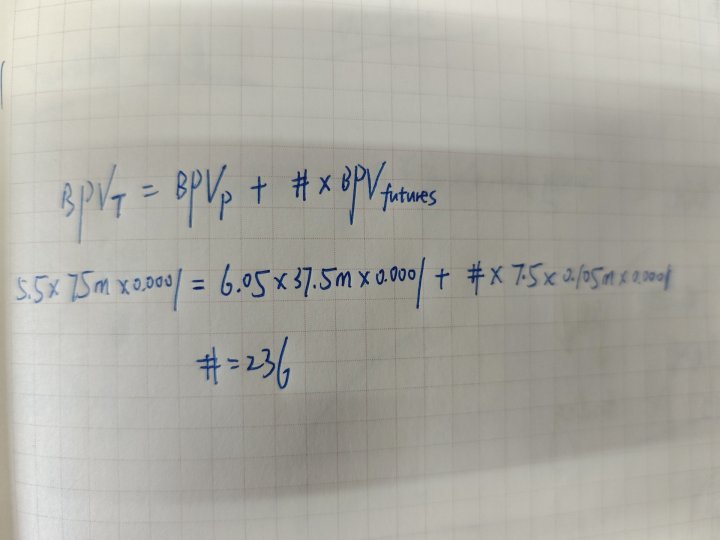 BPV_T = BPV_P + # × BPV_futures
5.5 × 75m × 0.0001 = 6.05 × 37.5m × 0.0001 + # × 7.5 × 0.105m × 0.0001
# = 236